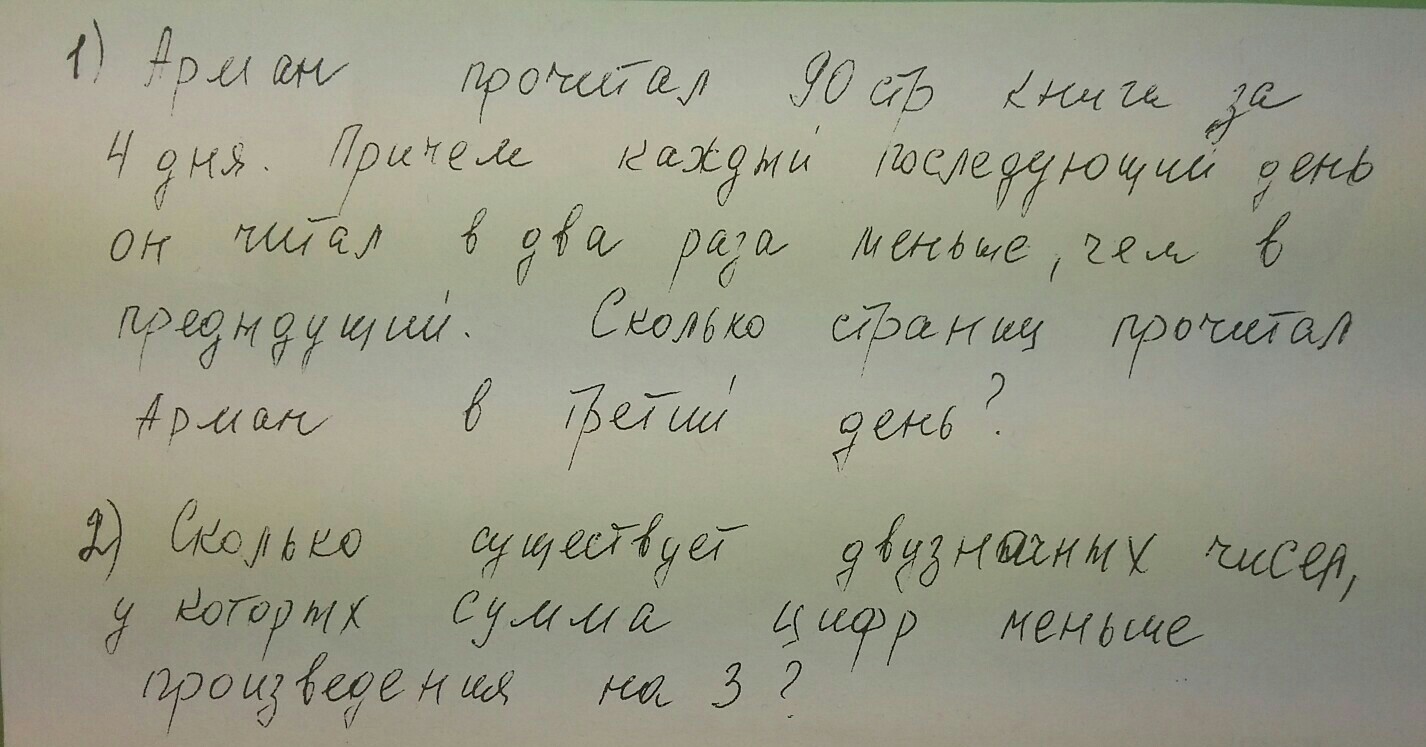 1) Арман прочитал 90 стр книги за
4 дня. Причем каждый последующий день
он читал в два раза меньше, чем в
предыдущий. Сколько страниц прочитал
Арман в третий день?
2) Сколько существует двузначных чисел,
у которых сумма цифр меньше
произведения на 3?